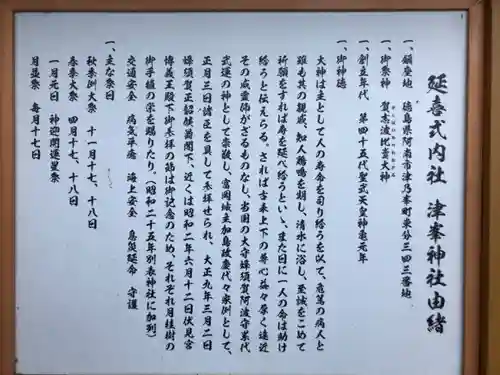 延喜式内社 津峯神社由緒
一、鎮座地 徳島県阿南市津乃峰町東分三四三番地
一、御祭神 賀志波比売大神
一、創立年代 第四十五代聖武天皇神亀元年
一、御神徳
大神は主として人の寿命を司り給うを以て、危篤の病人と
雖も其の親戚、知人勝鳴を朝し、清水に浴し、至誠をこめて
祈願をすれば寿を延べ給うといゝ、また日に一人の命は助け
給うと伝えらる。されば古来上下の尊心益々厚く遠近
その威霊仰がざるものなし、当国の大守蜂須賀阿波守累代
武運の神として崇敬し、富岡城主加島政慶代々家例として、
正月三日諸臣を具して参拝せられ、大正九年三月二日
蜂須賀正韶侯爵閣下、近くは昭和二年六月十二日伏見宮
博義王殿下御参拝の節は御記念のため、それぞれ月桂樹の
御手植の栄を賜りたり。(昭和二十五年別表神社に加列)
交通安全 病気平癒 海上安全 息災延命 守護
一、主な祭日
秋季例大祭 十一月十七、十八日
春季大祭 四月十七、十八日
一月元日 神迎開運星祭
月並祭 毎月十七日